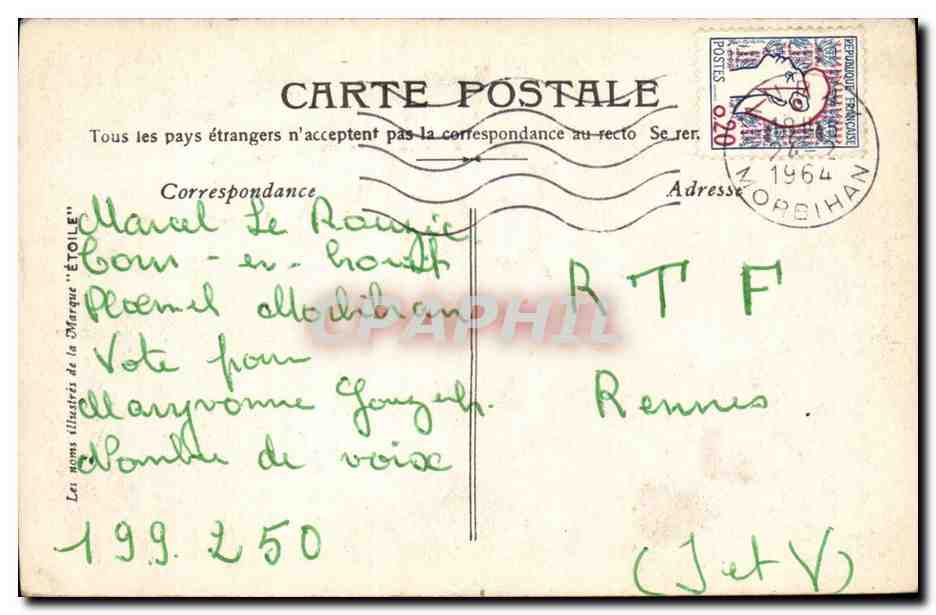 CARTE POSTALE
Tous les pays étrangers n'acceptent pas la correspondance au recto Se rer.
Correspondance
Adresse
REPUBLIQUE FRANÇAISE
POSTES
0,20
1964
MORBIHAN
Les noms illustrés de la Marque "ÉTOILE"
Marcel Le Rouzic
Ploemel Morbihan
Vote pour
Maryvonne
Nombre de voix
199.250
R T F
Rennes.
(J et V)
CPAPHIL